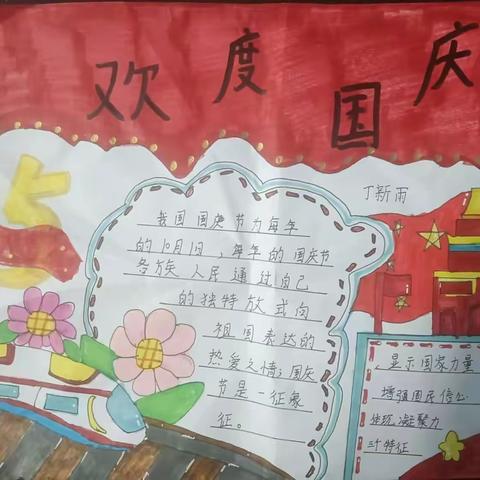 欢度国庆
丁新雨
我国国庆节为每年
的10月1日，每年的国庆节
各族人民通过自己
的独特放式向
祖国表达的
热爱之情；国庆
节是一征象
征。
显示国家力量
增强国民信心
体现凝聚力
三个特征